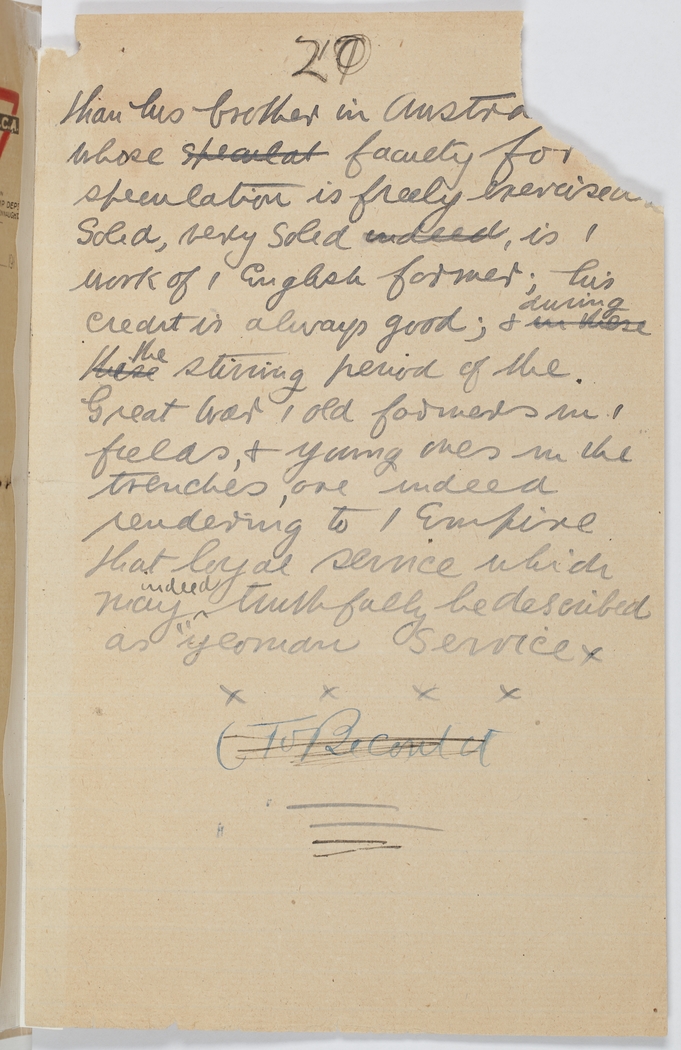 27
than his brother in Austra
whose speculat faculty for
speculation is freely exercised.
Solid, very Solid indeed, is /
work of / English farmer; his
during
credit is always good; & in these
the
these stirring period of the.
Great War / old farmers in /
fields, & young ones in the
trenches, are indeed
rendering to / Empire
that loyal service which
indeed
may ^ truthfully be described
as "yeoman Service x
x x x x
(To Be cont'd